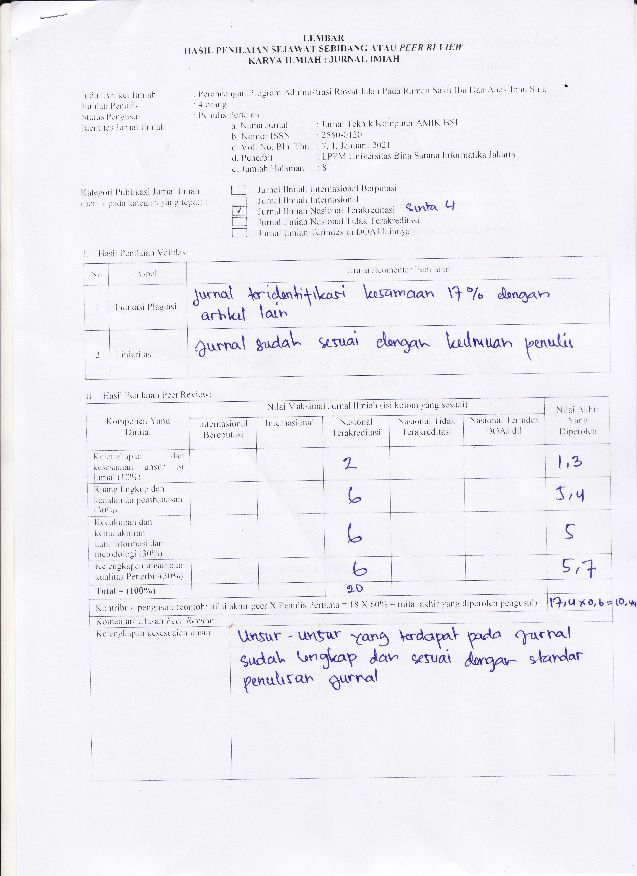 LEMBAR
HASIL PENILAIAN SEJAWAT SEBIDANG ATAU PEER REVIEW
KARYA ILMIAH : JURNAL IMIAH
Judul Artikel Ilmiah : Perancangan Program Administrasi Rawat Jalan Pada Rumah Sakit Ibu Dan Anak
Jumlah Penulis : 4 orang
Status Pengusul : Penulis Pertama
Identitas Jurnal Ilmiah
a. Nama Jurnal : Jurnal Teknik Komputer AMIK BSI
b. Nomor ISSN : 2550-0120
c. Vol. No. Bln. Thn. : 7, 1, Januari 2021
d. Penerbit : LPPM Universitas Bina Sarana Informatika Jakarta
e. Jumlah Halaman : 8
Kategori Publikasi Jurnal Ilmiah
pada kategori yang tepat)
Jurnal Ilmiah Internasional Bereputasi
Jurnal Ilmiah Internasional
√ Jurnal Ilmiah Nasional Terakreditasi Sinta 4
Jurnal Ilmiah Nasional Tidak Terakreditasi
Jurnal Ilmiah Terindex di DOAJ/lainnya
I. Hasil Penilaian Validasi
No Aspek Uraian/Komentar Penilaian
1 Indikasi Plagiasi Jurnal teridentifikasi kesamaan 17% dengan
artikel lain
2 Linieritas Jurnal sudah sesuai dengan keilmuan penulis
II. Hasil Penilaian Peer Review:
Komponen Yang Dinilai
Nilai Maksimal Jurnal Ilmiah (isi kolom yang sesuai)
Nilai Akhir Yang Diperoleh
Internasional Bereputasi
Internasional
Nasional Terakreditasi
Nasional Tidak Terakreditasi
Nasional Terindex DOAJ dll
Kelengkapan dan kesesuaian unsur isi jurnal (10%) 2 1,3
Ruang lingkup dan kedalaman pembahasan (30%) 6 5,4
Kecukupan dan kemutakhiran data/informasi dan metodologi (30%) 6 5
Kelengkapan unsur dan kualitas Penerbit (30%) 6 5,7
Total = (100%) 20
Kontribusi pengusul: (contoh: nilai akhir peer X Penulis Pertama = 18 X 60% = nilai akhir yang diperoleh pengusul) 17,4 x 0,6 = 10,44
Komentar/Ulasan Peer Review
Kelengkapan kesesuaian unsur Unsur - unsur yang terdapat pada jurnal
sudah lengkap dan sesuai dengan standar
penulisan jurnal